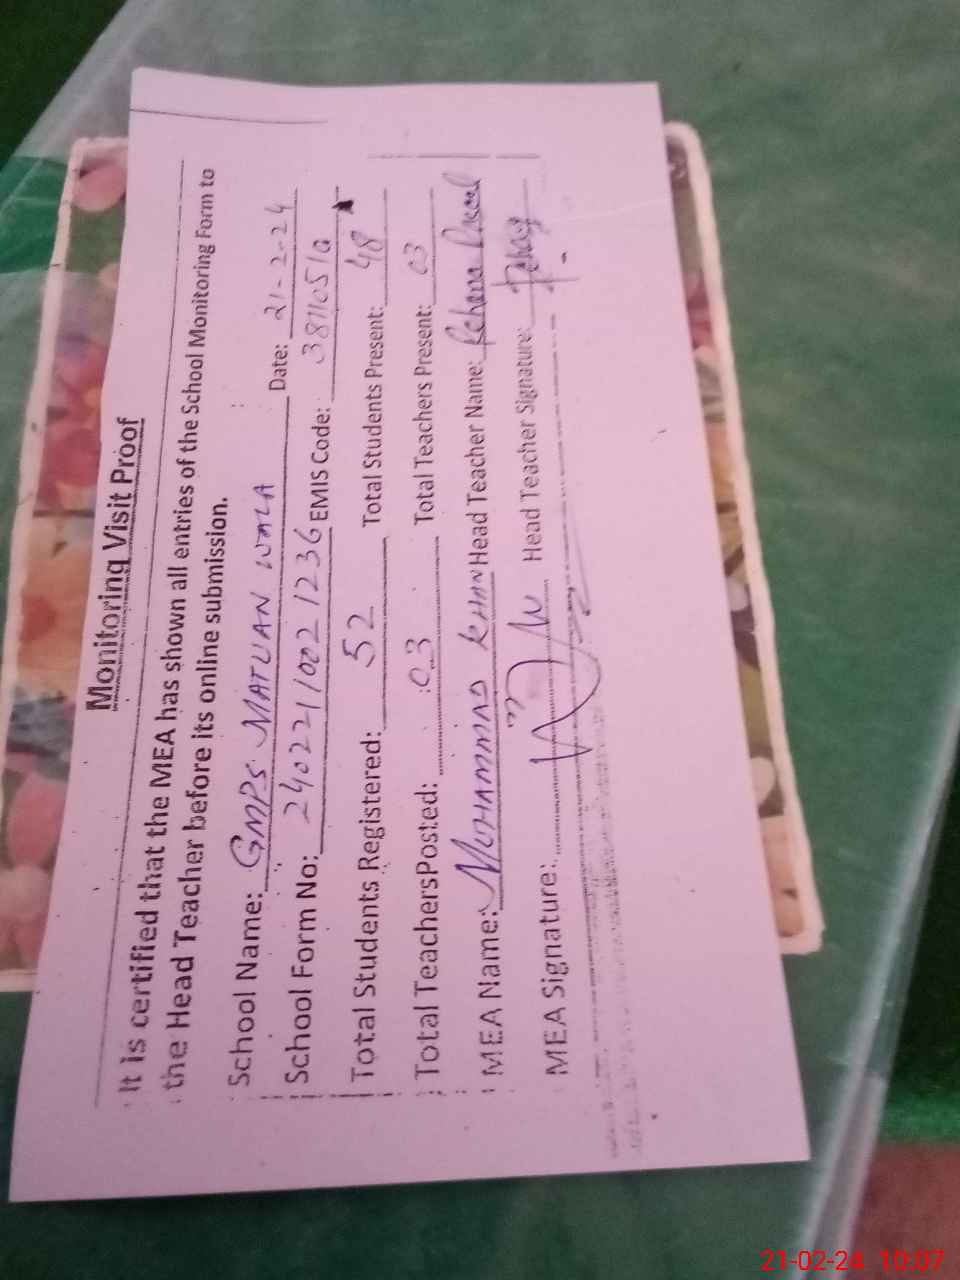 Monitoring Visit Proof
It is certified that the MEA has shown all entries of the School Monitoring Form to
the Head Teacher before its online submission.
School Name: GMPS MATUAN WALA Date: 21-2-24
School Form No: 24022110021236 EMIS Code: 38110510
Total Students Registered: 52 Total Students Present: 48
Total TeachersPosted: 03 Total Teachers Present: 03
MEA Name: MOHAMMAD KHAN Head Teacher Name: Rehana
MEA Signature: Head Teacher Signature:
21-02-24 10:07